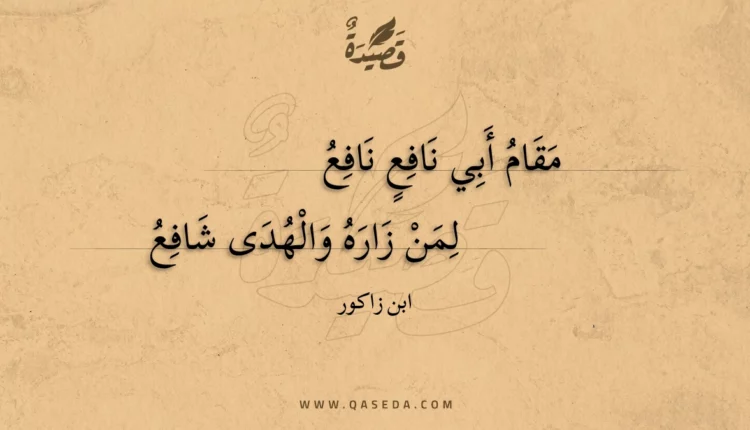 قَصِيدَةٌ
مَقَامُ أَبِي نَافِعٍ نَافِعُ
لِمَنْ زَارَهُ وَالْهُدَى شَافِعُ
ابن زاكور
WWW.QASEDA.COM